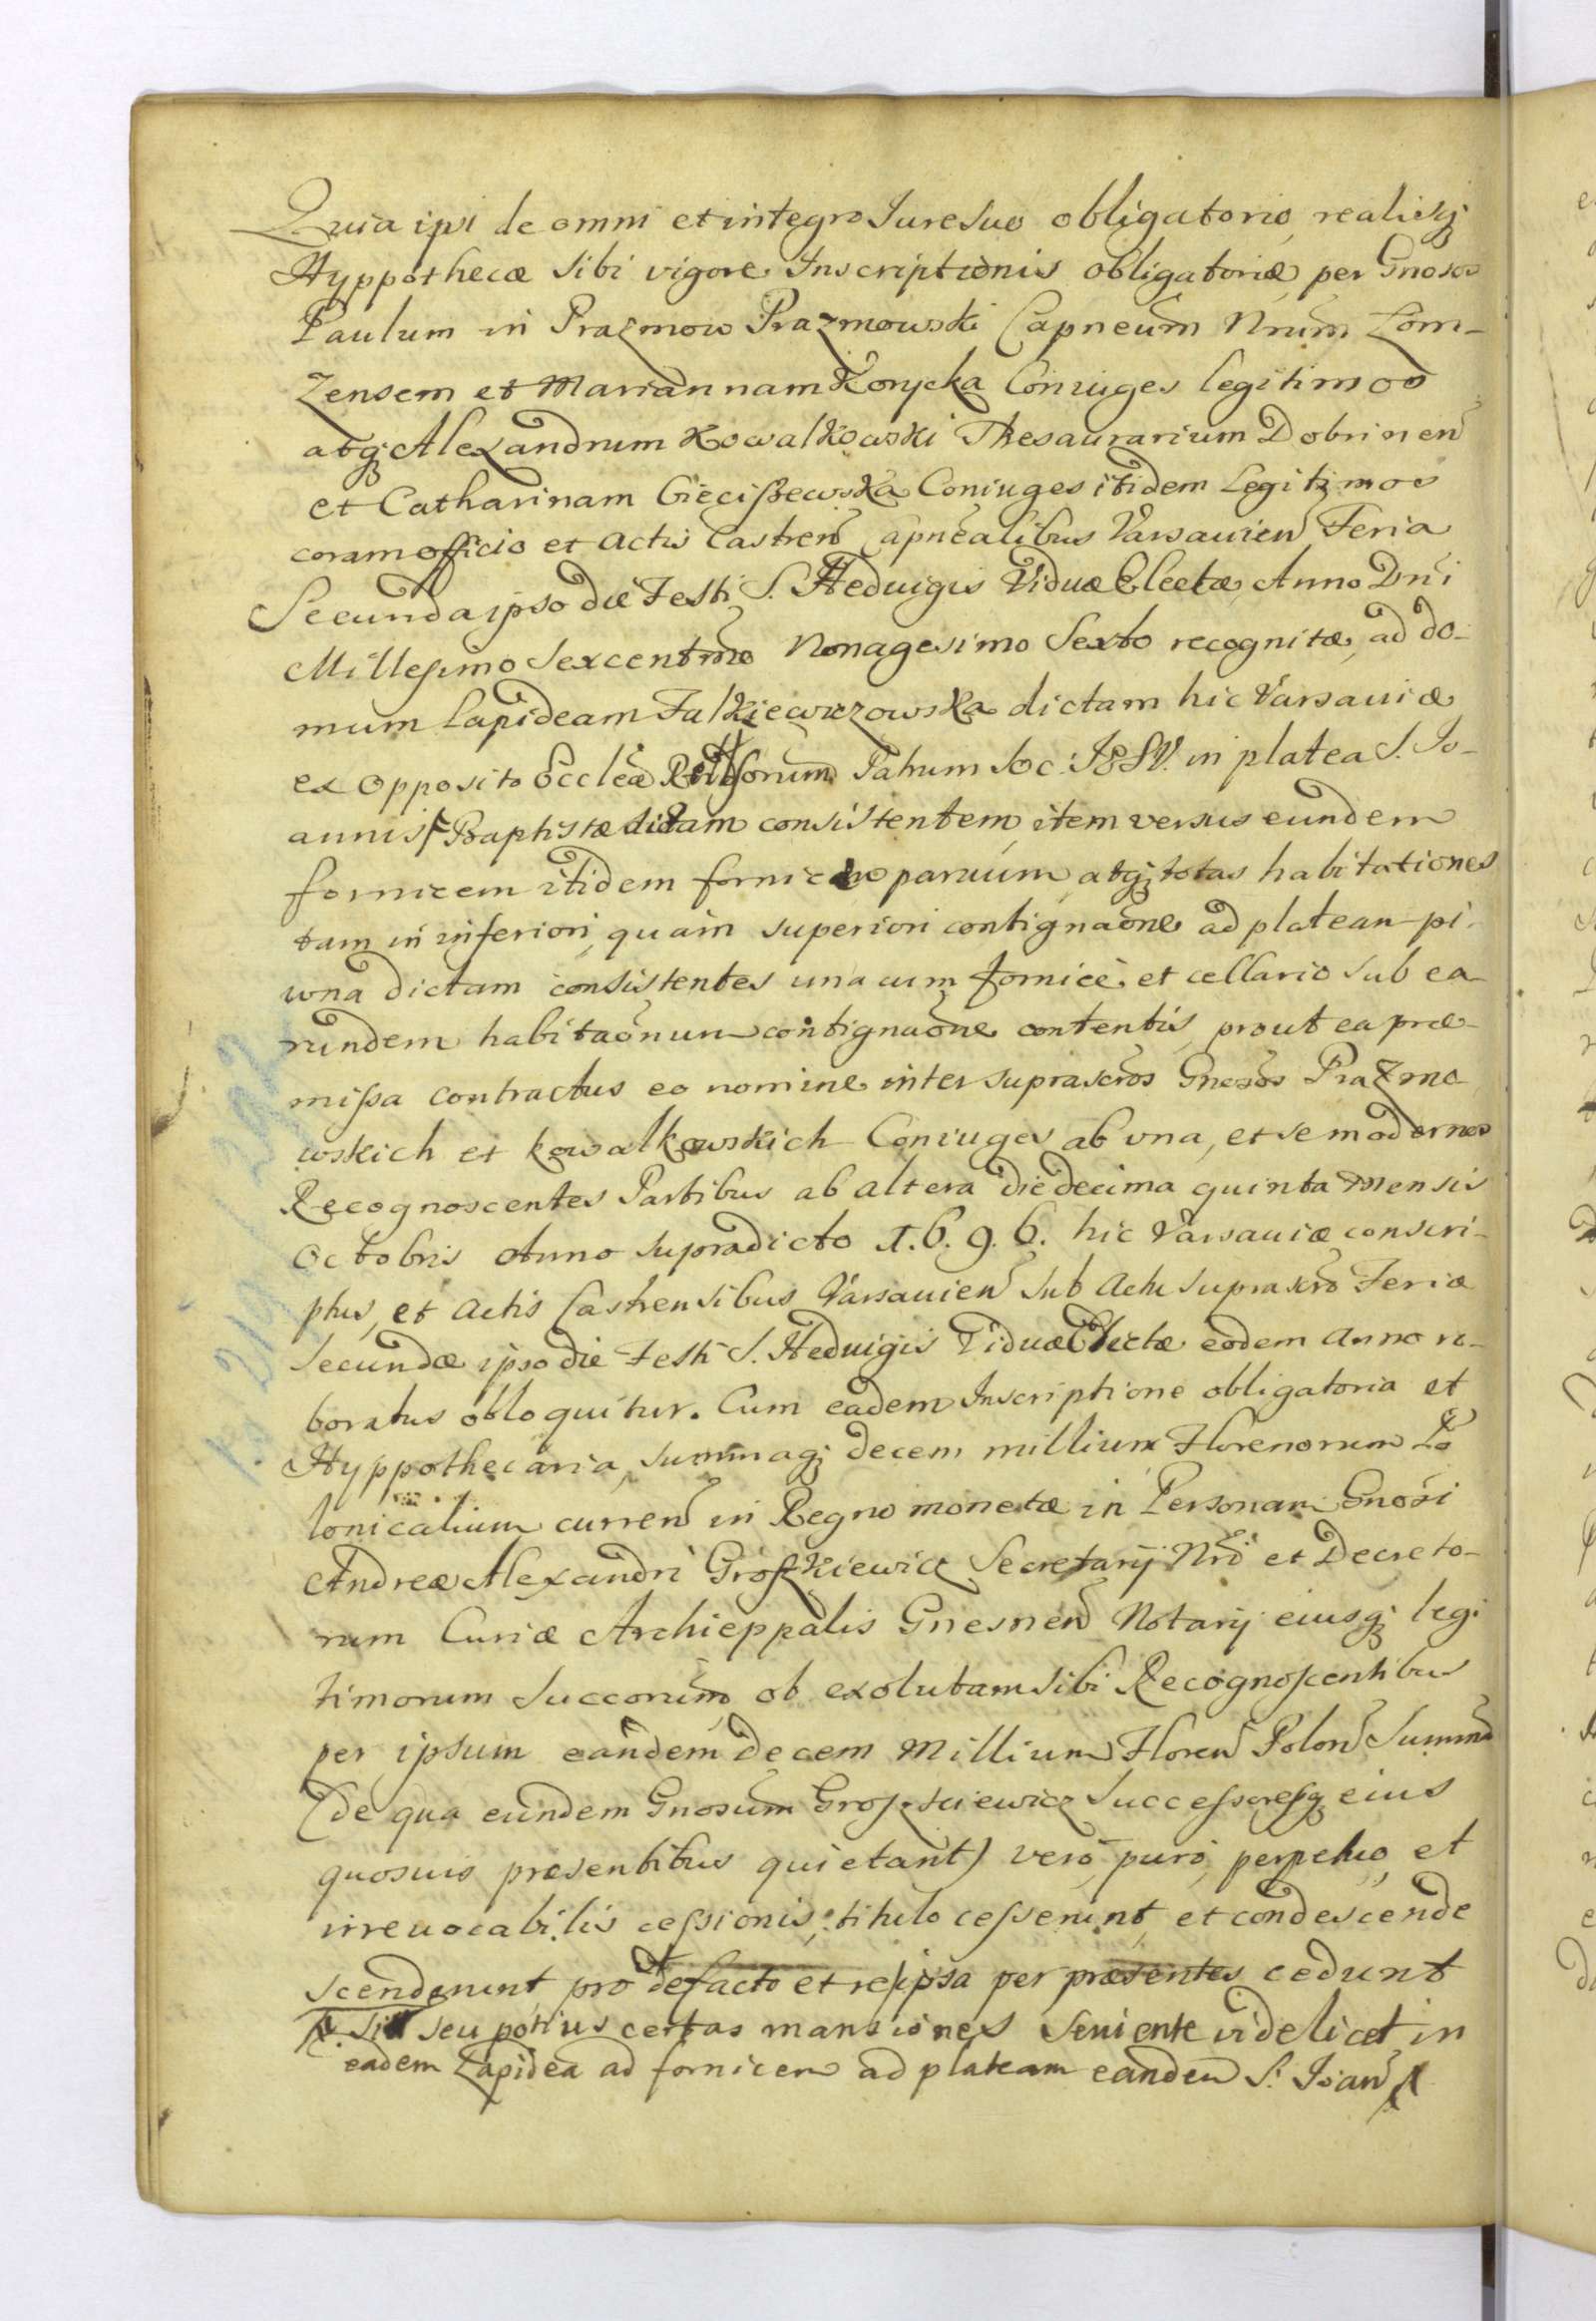 Quia ipsi de omni et integro Jure suo obligatorio, realisq;
Hyppothecæ sibi vigore Inscriptionis obligatoriæ per Gnosos
Paulum in Prazmow Prazmowski Capneum Nrum Lom-
zensem et Mariannam Konycka Coniuges legitimos
atq; Alexandrum Kowalkowski Thesaurarium Dobrinen
et Catharinam Ciecißewska Coniuges itidem Legitimos
coram officio et actis Castren Capnealibus Varsavien Feria
Secunda ipso die Festi S. Hedvigis Viduæ Electæ Anno Dni
Millesimo Sexcentmo Nonagesimo Sexto recognitæ, ad do-
mum Lapideam Falkiewiczowska dictam hic Varsaviæ
ex opposito Eccleæ Patrum Soc: JESV. in platea S. Jo-
annis Baptistæ dictam consistentem, item versus eundem
fornicem itidem parvum, atq; totas habitationes
tam in inferiori, quam superiori contignaone ad platean pi-
wna dictam consistentes una cum fornice, et cellario sub ea-
rundem habitaonum contignaone contentis, prout ea præ-
missa contractus eo nomine inter suprascros Gnosos Prazmo-
wskich et Kowalkowskich Coniuges ab una, et se modernos
Recognoscentes Partibus ab altera die decima quinta mensis
Octobris Anno supradicto 1.6.9.6. hic Varsaviæ conscri-
ptus, et actis Castrensibus Varsavien sub actu suprascro Feriæ
Secundæ ipso die Festi S. Hedvigis Viduæ Electæ eodem anno ro-
boratus obloquitur. Cum eadem Inscriptione obligatoria et
Hyppothecaria, summaq; decem millium Florenorum Po
lonicalium curren in Regno monetæ in Personam Gnosi
Andreæ Alexandri Groszkiewicz Secretarij Nri et Decreto-
rum Curiæ Archieppalis Gnesnen Notarij eiusq; legi
timorum Succorum ob exolutam sibi Recognoscentibus
per ipsum eandem decem Millium Floren Polon Summa
(de qua eundem Gnosum Groszkiewicz Successoresq; eius
quosvis præsentibus quietant) vero, puro, perpetuo, et
irrevocabilis cessionis titulo cesserunt, et condescende
scenderunt pro ut de facto et reipsa per præsentes cedunt
seu potius certas mansiones videlicet in
eadem Lapidea ad fornicem ad plateam eandem S. Joan